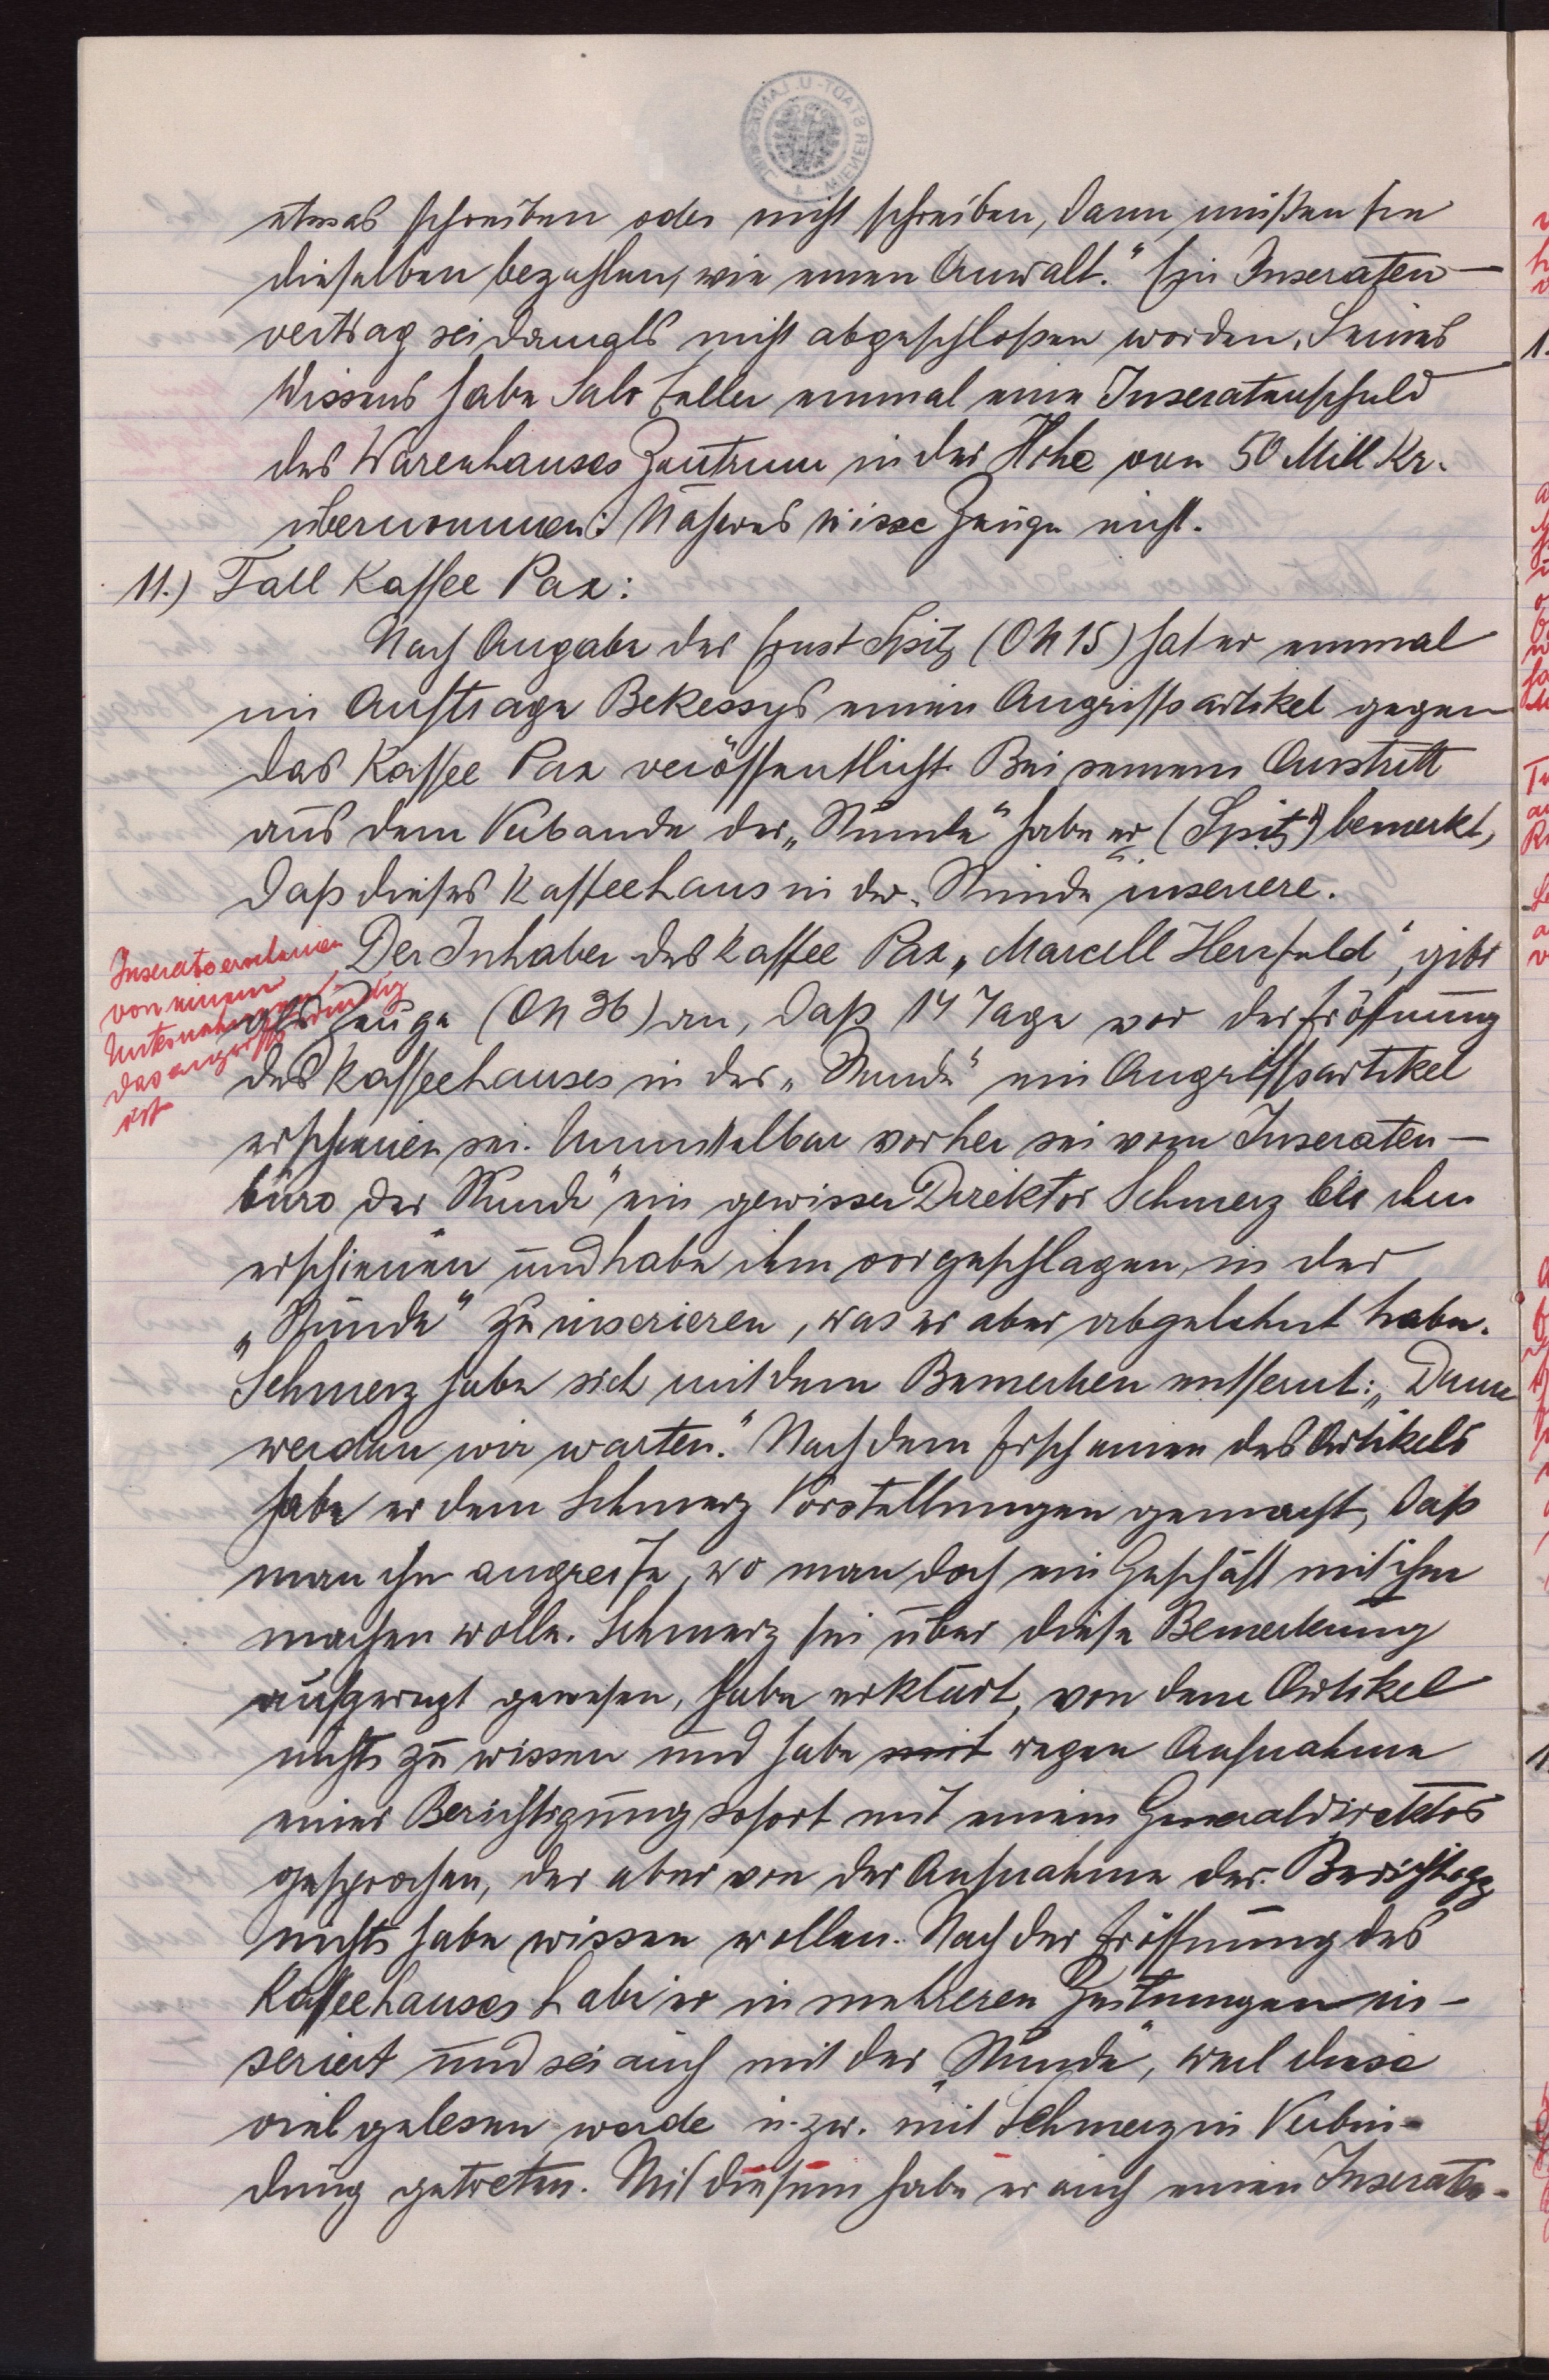 etwas schreiben oder nicht schreiben, dann müßen sie
dieselben bezahlen, wie einen Anwalt." Ein Inseraten-
vertrag sei damals nicht abgeschloßen worden. Seines
Wissens habe Salo Teller einmal eine Inseratenschuld
des Warenhauses Zentrum in der Höhe von 50 Mill Kr.
übernommen. Näheres wisse Zeuge nicht.
11.) Fall Kaffee Pax:
Nach Angabe des Ernst Spitz (ON 15) hat er einmal
im Auftrage Bekessys einen Angriffsartikel gegen
das Kaffee Pax veröffentlicht. Bei seinem Austritt
aus dem Verbande der „Stunde" habe er (Spitz) bemerkt,
daß dieses Kaffeehaus in der „Stunde inseriere.
Der Inhaber des Kaffee Pax „Marcell Herzfeld", gibt
als Zeuge (ON 36) an, daß 14 Tage vor der Eröffnung
des Kaffeehauses in der „Stunde" ein Angriffsartikel
erschienen sei. Unmittelbar vorher sei vom Inseraten-
büro der Stunde" ein gewisser Direktor Schmerz bei ihm
erschienen und habe ihm vorgeschlagen, in der
„Stunde" zu inserieren, was er aber abgelehnt habe.
Schmerz habe sich mit dem Bemerken entfernt: „Dann
werden wir warten." Nach dem Erscheinen des Artikels
habe er dem Schmerz Vorstellungen gemacht, daß
man ihn angreife, wo man doch ein Geschäft mit ihm
machen wolle. Schmerz sei über diese Bemerkung
aufgeregt gewesen, habe erklärt, von dem Artikel
nichts zu wissen und habe wegen Aufnahme
einer Berichtigung sofort mit einem Generaldirektor
gesprochen, der aber von der Aufnahme der Berichtigg
nichts habe wissen wollen. Nach der Eröffnung des
Kaffeehauses habe er in mehreren Zeitungen in-
seriert und sei auch mit der „Stunde", weil diese
viel gelesen werde u. zw. mit Schmerz in Verbin-
dung getreten. Mit diesem habe er auch einen Inseraten-
Inserate erscheinen
von einem
Unternehmen,
das angriffswürdig
ist